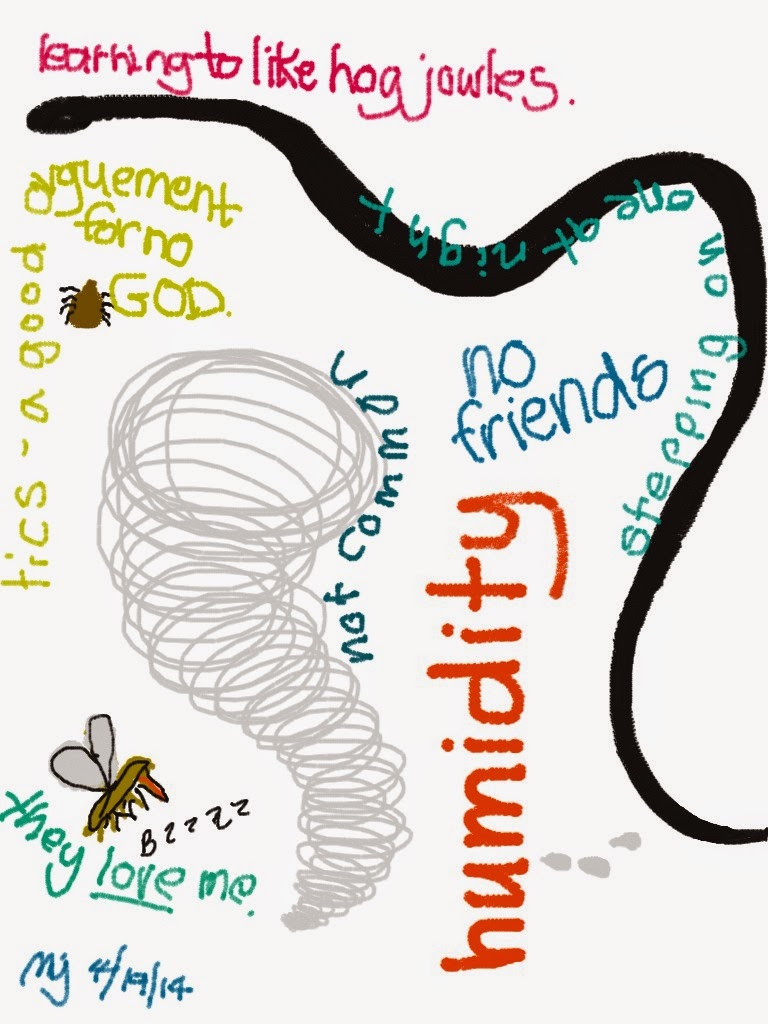 learning to like hog jowles.
tics - a good
arguement
for no
GOD.
stepping on one at night
no
friends
not
humidity
Bzzzz
they love me.
mj 4/19/14